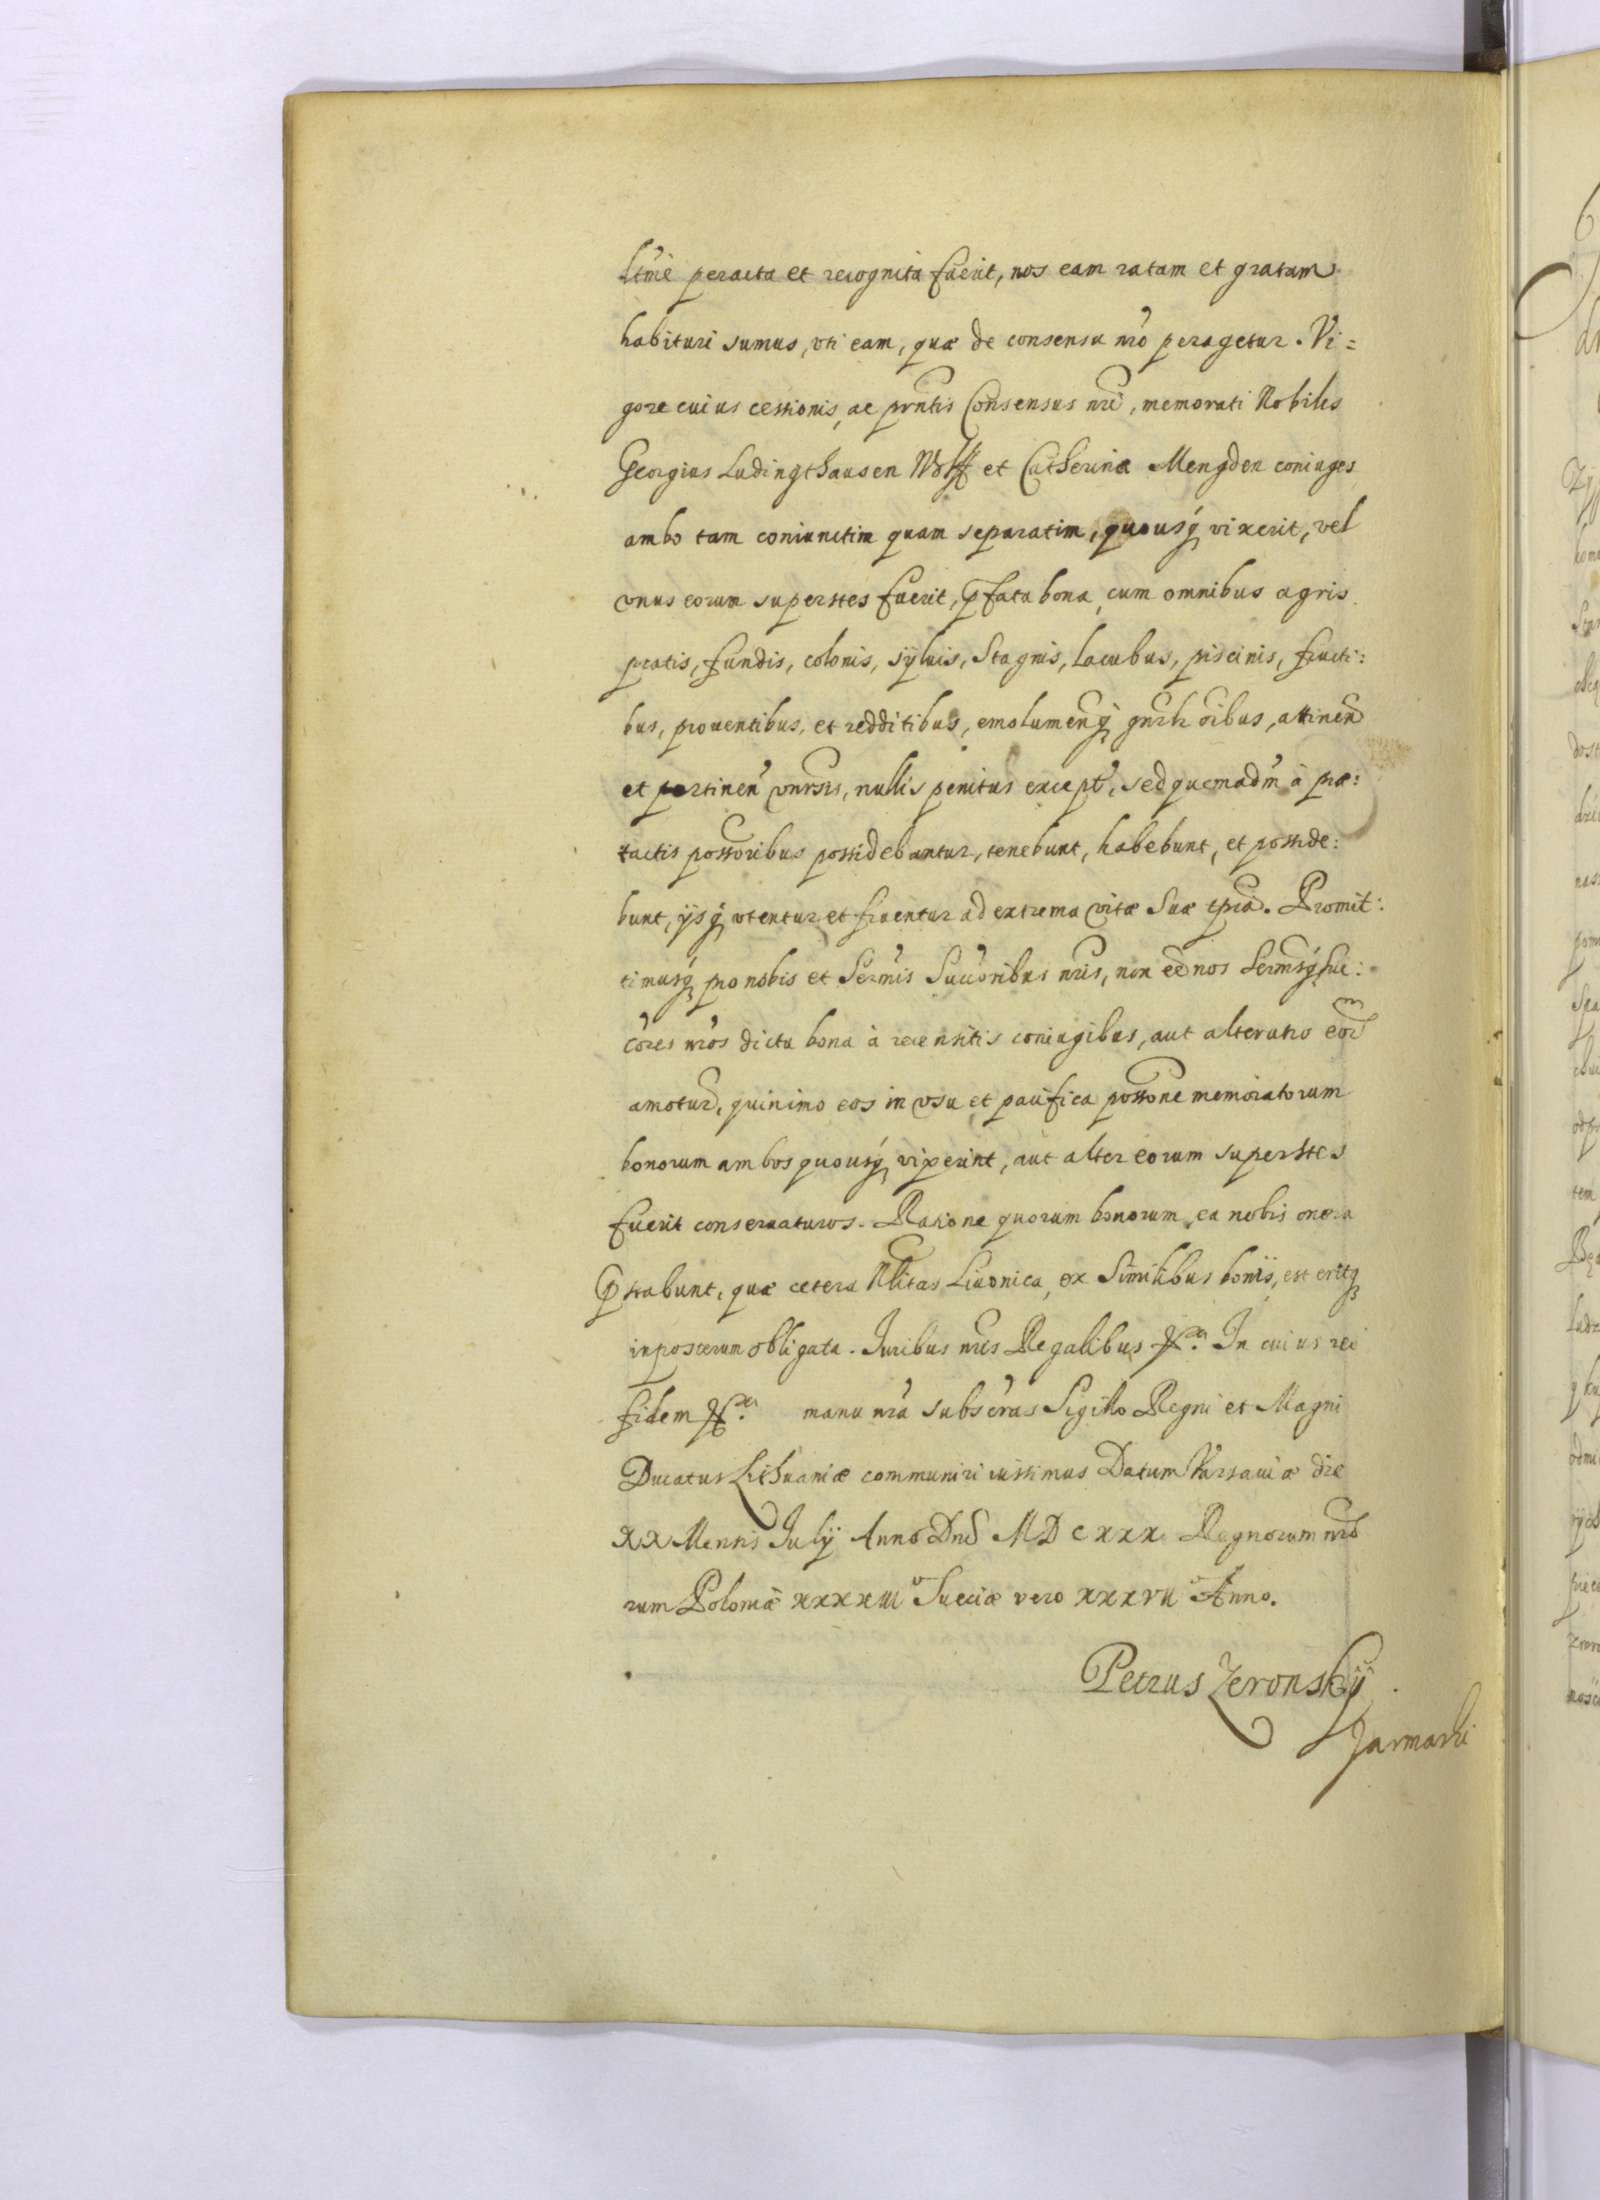 ltmè peracta et recognita fuerit, nos eam ratam et gratam
habituri sumus, vti eam, quæ de consensu nro peragetur. Vi=
gore cuius cessionis, ac prntis Consensus nri, memorati Nobiles
Georgius Ludingthausen Wolff et Catherina Mengden coniuges
ambo tam coniunctim quam separatim, quousq vixerit, vel
vnus eorum superstes fuerit, pfata bona, cum omnibus agris
pratis, fundis, colonis, sÿluis, Stagnis, Lacubus, piscinis, fructi:
bus, prouentibus, et redditibus, emolumenq gnrlr oibus, attinen
et pertinen vnrsis, nullis penitus except, sed quemadm à præ:
tactis possoribus possidebantur, tenebunt, habebunt, et posside:
bunt, ijsq vtentur et fruentur ad extrema vitæ Suæ tpra. Promit:
timusq pro nobis et Sermis Succoribus nris, non eē nos Sermsq Suc:
cores nros dicta bona à recensitis coniugibus, aut alterutro eor
amotur, quinimo eos in vsu et pacifica possone memoratorum
bonorum ambos quousq vixerint, aut alter eorum superstes
fuerit conseruaturos. Ratione quorum bonorum, ea nobis onera
pstabunt, quæ cetera Nlitas Liuonica, ex Similibus bonis, est eritq
inposterum obligata. Iuribus nris Regalibus &ca. In cuius rei
fidem &ca. manu nra subscras Sigillo Regni et Magni
Ducatus Lithuaniæ communiri iussimus Datum Varsauiæ die
XX Mensis Julÿ Anno Dni MDCXXX Regnorum nro
rum Poloniæ XXXXIII Sueciæ vero XXXVII Anno.
Petrus Zeronskÿ